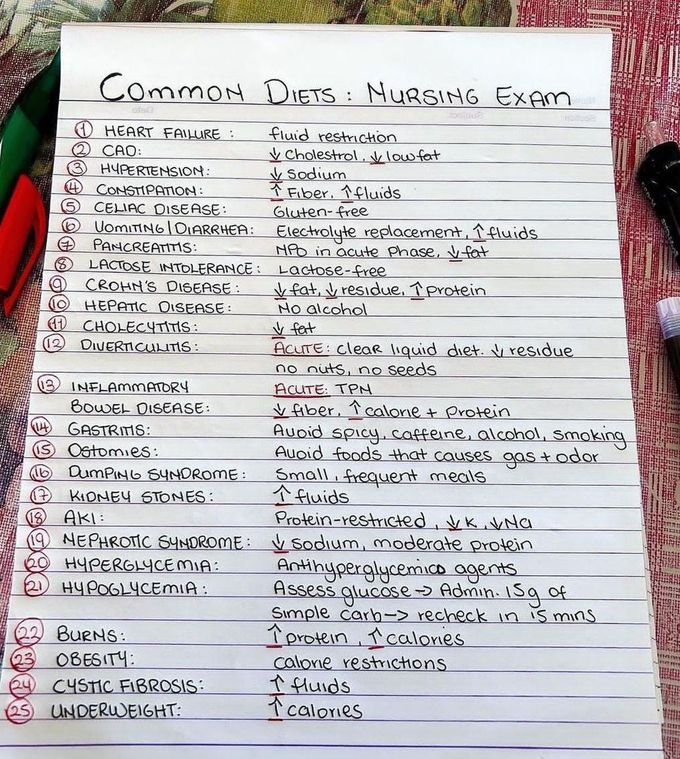 COMMON DIETS : NURSING EXAM
1 HEART FAILURE : fluid restriction
2 CAD: ↓ Cholestrol, ↓ lowfat
3 HYPERTENSION: ↓ Sodium
4 CONSTIPATION: ↑ Fiber, ↑ fluids
5 CELIAC DISEASE: Gluten-free
6 VOMITING/DIARRHEA: Electrolyte replacement, ↑ fluids
7 PANCREATITIS: NPO in acute phase, ↓ fat
8 LACTOSE INTOLERANCE: Lactose-free
9 CROHN'S DISEASE: ↓ fat, ↓ residue, ↑ protein
10 HEPATIC DISEASE: No alcohol
11 CHOLECYTITIS: ↓ fat
12 DIVERTICULITIS: ACUTE: clear liquid diet. ↓ residue
no nuts, no seeds
13 INFLAMMATORY ACUTE: TPN
BOWEL DISEASE: ↓ fiber, ↑ calorie + protein
14 GASTRITIS: Avoid spicy, caffeine, alcohol, smoking
15 Ostomies: Avoid foods that causes gas + odor
16 DUMPING SYNDROME: Small, frequent meals
17 KIDNEY STONES: ↑ fluids
18 AKI: Protein-restricted, ↓ K, ↓ Na
19 NEPHROTIC SYNDROME: ↓ sodium, moderate protein
20 HYPERGLYCEMIA: Antihyperglycemic agents
21 HYPOGLYCEMIA: Assess glucose → Admin. 15g of
simple carb → recheck in 15 mins
22 BURNS: ↑ protein, ↑ calories
23 OBESITY: calorie restrictions
24 CYSTIC FIBROSIS: ↑ fluids
25 UNDERWEIGHT: ↑ calories